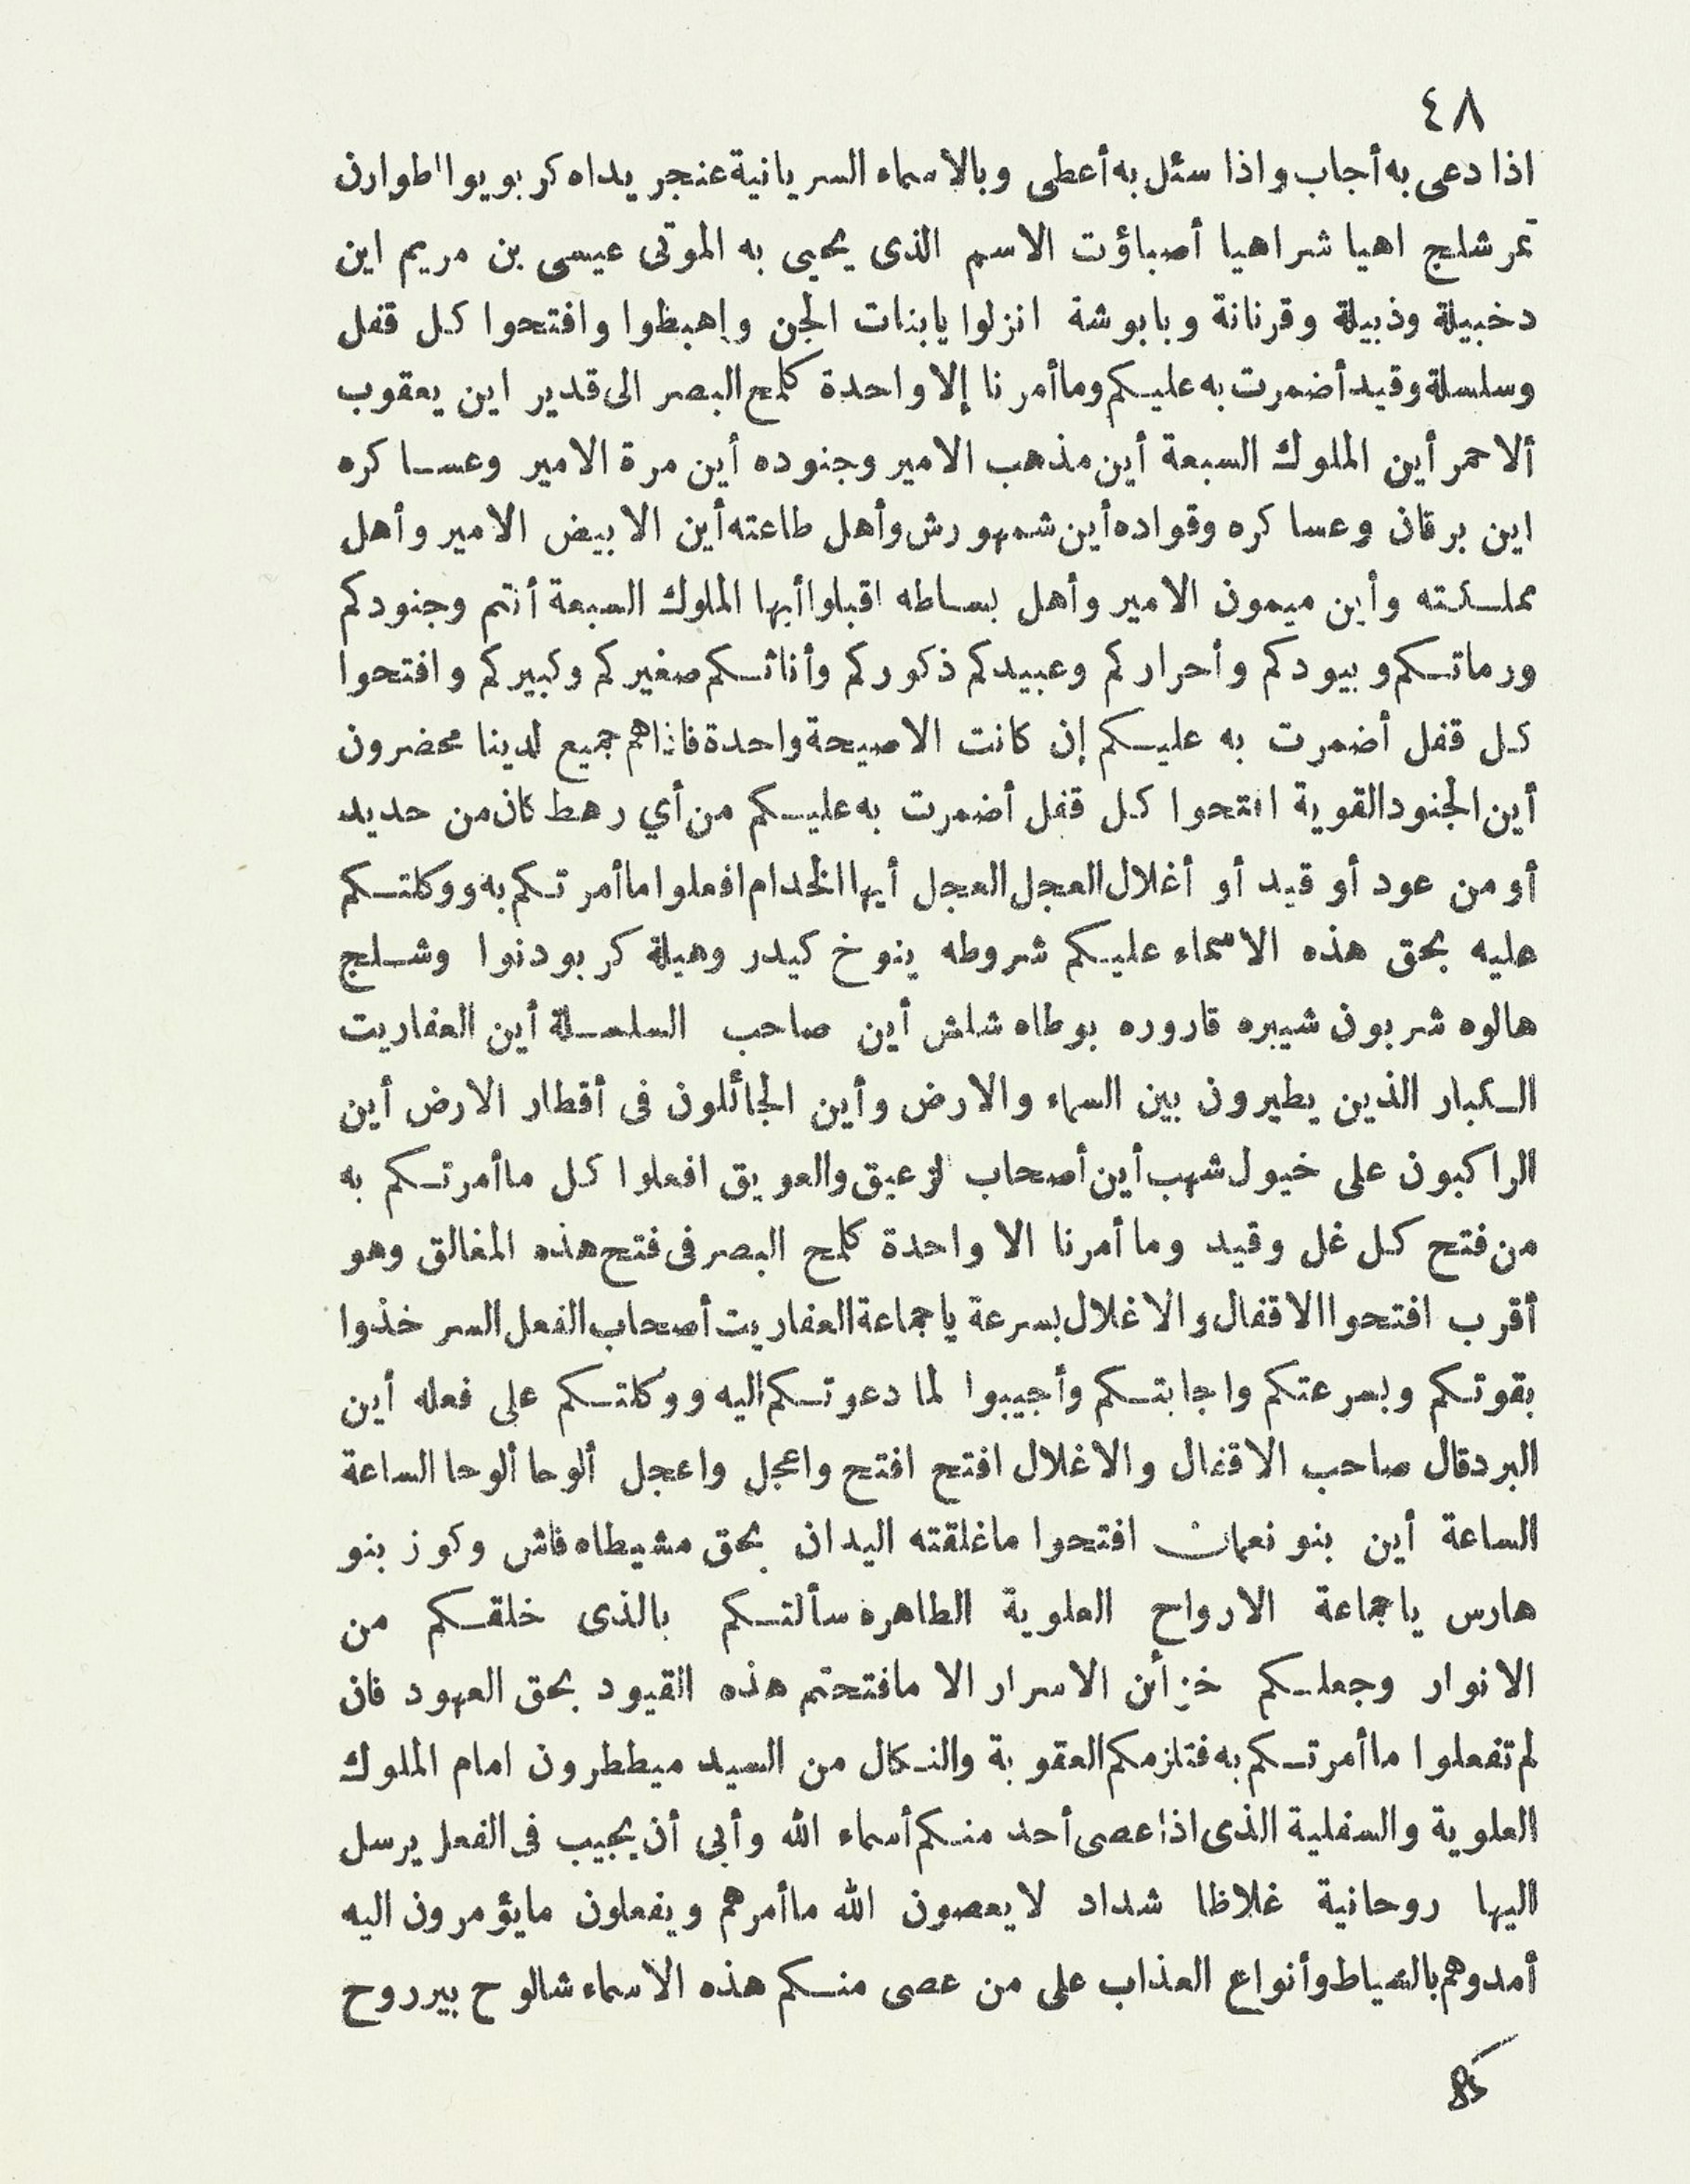 ٤٨
اذا دعى به أجاب واذا سئل به أعطى وبالاسماء السريانية عنجر يداه كر بو يوا طوارن
تمر شلج اهيا شراهيا أصباؤت الاسم الذى يحيى به الموتى عيسى بن مريم اين
دخبيلة وذبيلة وقرنانة وبابوشة انزلوا يابنات الجن واهبطوا وافتحوا كل قفل
وسلسلة وقيد أضمرت به عليكم وما أمرنا إلا واحدة كلمح البصر الى قدير اين يعقوب
ألاحمر أين الملوك السبعة أين مذهب الامير وجنوده أين مرة الامير وعساكره
اين برقان وعساكره وقواده أين شمهورش وأهل طاعته أين الابيض الامير وأهل
مملكته وأين ميمون الامير وأهل بساطه اقبلوا أيها الملوك السبعة أنتم وجنودكم
ورماتكم وبيودكم وأحراركم وعبيدكم ذكوركم وأناثكم صغيركم وكبيركم وافتحوا
كل قفل أضمرت به عليكم إن كانت الاصيحة واحدة فاذاهم جميع لدينا محضرون
أين الجنود القوية افتحوا كل قفل أضمرت به عليكم من أي رهط كان من حديد
أو من عود أو قيد أو أغلال العجل العجل أيها الخدام افعلوا ما أمرتكم به ووكلتكم
عليه بحق هذه الاسماء عليكم شروطه ينوخ كيدر وهيلة كر بودنوا وشلج
هالوه شربون شيبره قاروره بوطاه شلش أين صاحب السلسلة أين العفاريت
الكبار الذين يطيرون بين السماء والارض وأين الجائلون فى أقطار الارض أين
الراكبون على خيول شهب أين أصحاب لزعيق والعويق افعلوا كل ما أمرتكم به
من فتح كل غل وقيد وما أمرنا الا واحدة كلمح البصر فى فتح هذه المغالق وهو
أقرب افتحوا الاقفال والاغلال بسرعة ياجماعة العفاريت أصحاب الفعل السر خذوا
بقوتكم وبسرعتكم واجابتكم وأجيبوا لما دعوتكم اليه ووكلتكم على فعله أين
البردقال صاحب الاقفال والاغلال افتح افتح واعجل واعجل ألوحا ألوحا الساعة
الساعة أين بنو نعمان افتحوا ماغلقته اليدان بحق مشيطاه فاش وكوز بنو
هارس ياجماعة الارواح العلوية الطاهره سألتكم بالذى خلقكم من
الانوار وجعلكم خزأن الاسرار الا مافتحتم هذه القيود بحق العهود فان
لم تفعلوا ما أمرتكم به فتلزمكم العقوبة والنكال من السيد ميططرون امام الملوك
العلوية والسفلية الذى اذا عصى أحد منكم أسماء الله وأبى أن يجيب فى الفعل يرسل
اليها روحانية غلاظا شداد لايعصون الله ما أمرهم ويفعلون مايؤمرون اليه
أمدوهم بالسياط وأنواع العذاب على من عصى منكم هذه الاسماء شالوح بيرروح
85